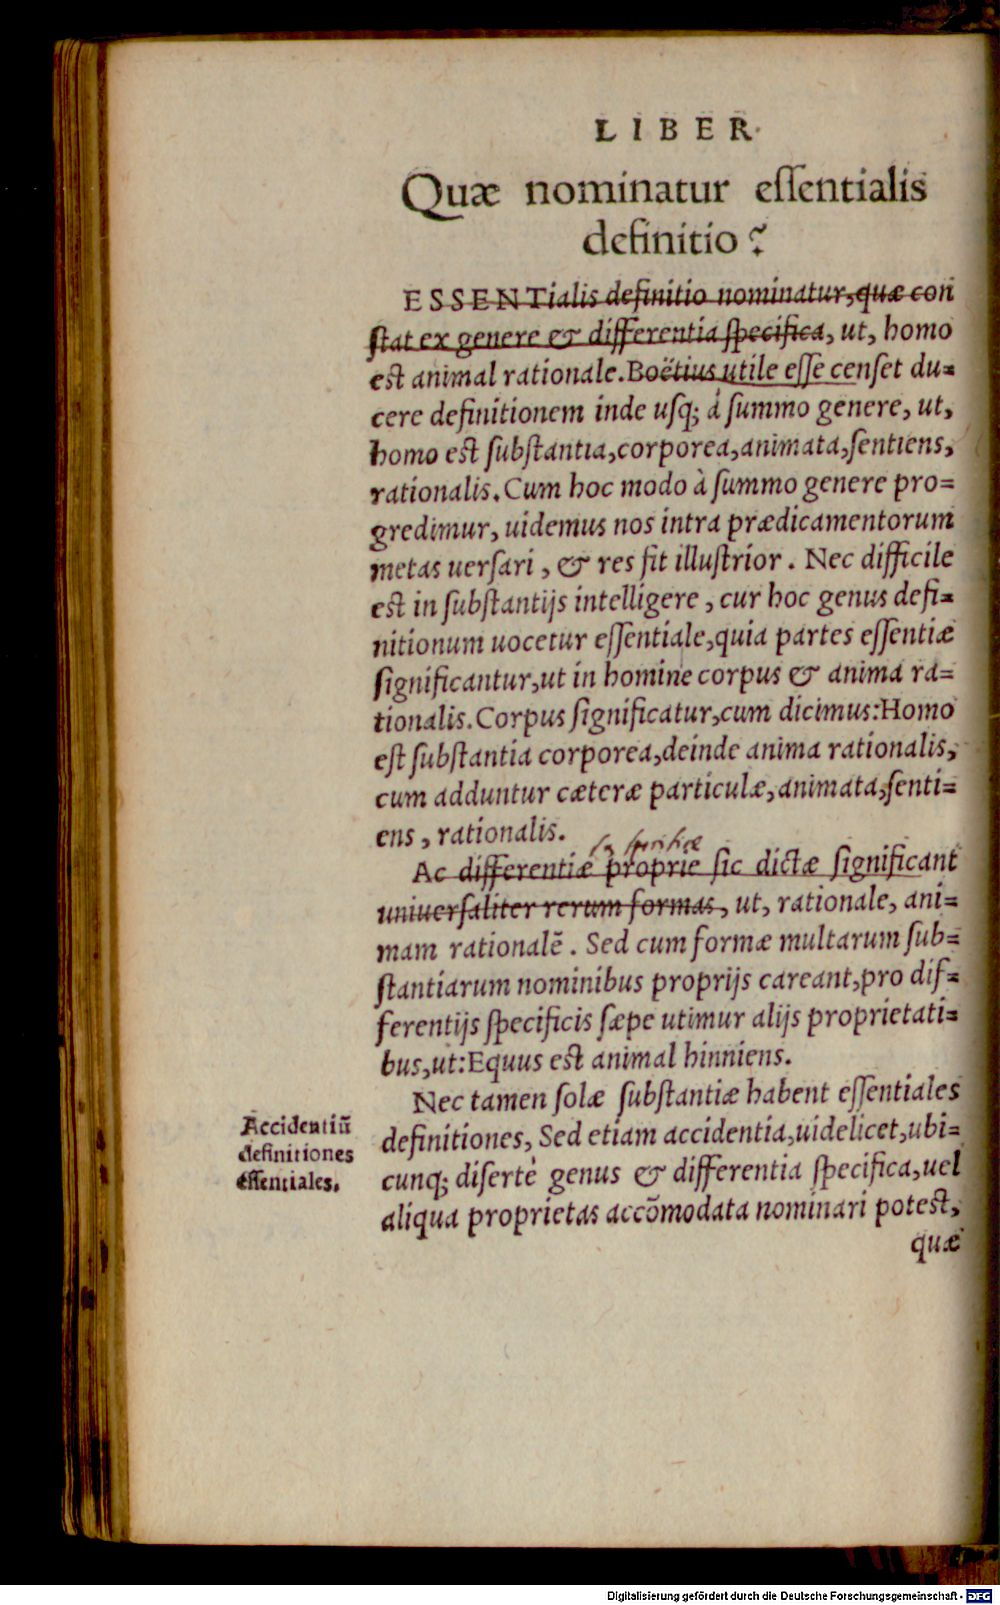 LIBER
Quæ nominatur essentialis
definitio?
ESSENTialis definitio nominatur, quæ con
stat ex genere & differentia specifica, ut, homo
est animal rationale. Boëtius utile esse censet du=
cere definitionem inde usq; à summo genere, ut,
homo est substantia, corporea, animata, sentiens,
rationalis. Cum hoc modo à summo genere pro=
gredimur, uidemus nos intra prædicamentorum
metas uersari, & res fit illustrior. Nec difficile
est in substantijs intelligere, cur hoc genus defi=
nitionum uocetur essentiale, quia partes essentiæ
significantur, ut in homine corpus & anima ra=
tionalis. Corpus significatur, cum dicimus: Homo
est substantia corporea, deinde anima rationalis,
cum adduntur cæteræ particulæ, animata, senti=
ens, rationalis.
Ac differentiæ proprie sic dictæ significant
uniuersaliter rerum formas, ut, rationale, ani=
mam rationalē. Sed cum formæ multarum sub=
stantiarum nominibus proprijs careant, pro dif=
ferentijs specificis sæpe utimur alijs proprietati=
bus, ut: Equus est animal hinniens.
Nec tamen solæ substantiæ habent essentiales
definitiones, Sed etiam accidentia, uidelicet, ubi=
cunq; disertè genus & differentia specifica, uel
aliqua proprietas accōmodata nominari potest,
quæ
Accidentiū
definitiones
essentiales.
Digitalisierung gefördert durch die Deutsche Forschungsgemeinschaft - DFG